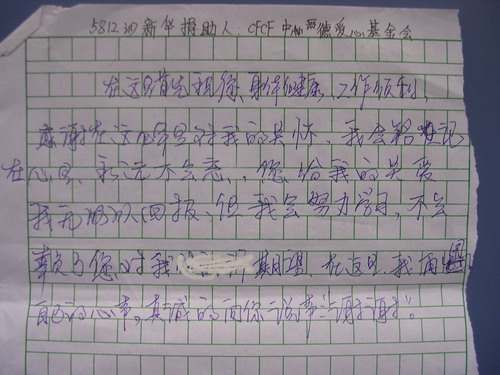 5812 新华捐助人：CFCF 中 德爱心基金会
在这里首先祝您身体健康、工作顺利
感谢在这几年里对我的关怀、我会铭记
在心里、永远不会忘、您给我的关爱
我无以回报、但我会努力学习、不会
辜负了您对我 期望、在这里、我用
自己的心事、真诚的向你说声“谢谢”！